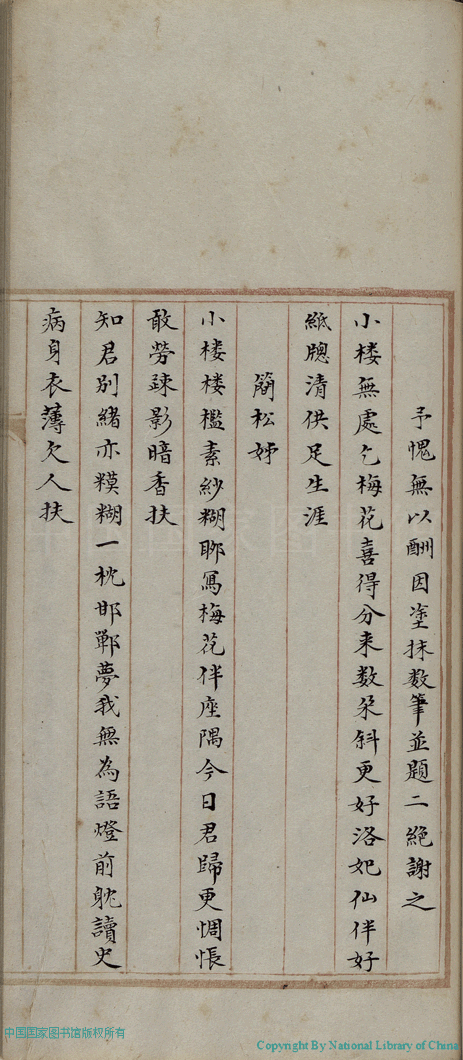 予愧無以酬因塗抹数筆並題二絶謝之
小楼無處乞梅花喜得分来数朶斜更好洛妃仙伴好
紙牕清供足生涯
簡松姊
小楼楼檻素紗糊聊寫梅花伴座隅今日君歸更惆悵
敢勞踈影暗香扶
知君别緒亦糢糊一枕邯鄲夢我無為語燈前躭讀史
病身衣薄欠人扶
中国国家图书馆版权所有
Copyright By National Library of China